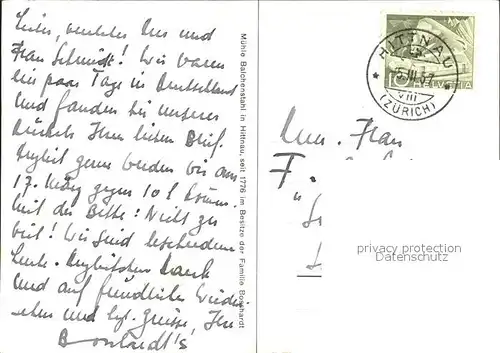 Lieber, verehrter Herr und
Frau Schmidt! Wir waren
ein paar Tage in Deutschland
und fanden bei unserer
Rückkehr Ihren lieben Brief.
gerne werden wir am
17. März gegen 10
mit der Bitte: Nicht zu
viel! Wir sind bescheidene
Leute. Herzlichen Dank
und auf freundliches Wieder-
sehen und hzl. Grüsse, Ihre
Bosshardt's
Mühle Balchenstahl in Hittnau, seit 1776 im Besitze der Familie Bosshardt
HITTNAU
(ZÜRICH)
VIII
10 HELVETIA
Frau
F.
privacy protection
Datenschutz